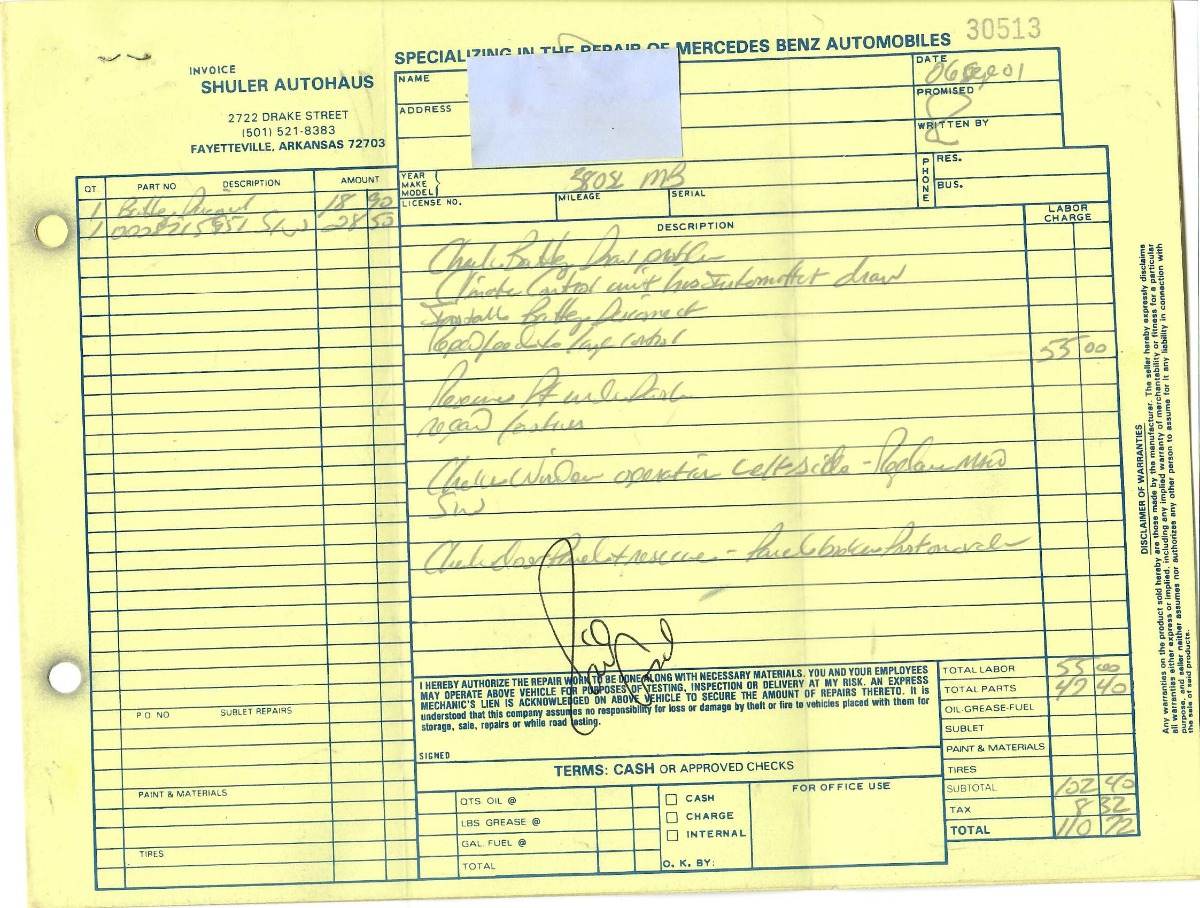 30513
SPECIALIZING IN THE REPAIR OF MERCEDES BENZ AUTOMOBILES
INVOICE
SHULER AUTOHAUS
2722 DRAKE STREET
(501) 521-8383
FAYETTEVILLE, ARKANSAS 72703
NAME
ADDRESS
DATE
06 Sep 01
PROMISED
WRITTEN BY
YEAR
MAKE
MODEL
380SL MB
PHONE
RES.
BUS.
LICENSE NO.
MILEAGE
SERIAL
QT. PART NO DESCRIPTION AMOUNT
1 18 90
1 0008215951 SW 28 50
DESCRIPTION
LABOR
CHARGE
Check Battery Draw problem
Climate Control unit has draw
Battery Disconnect
control
55 00
under Dash
repair
Check Window operation Left side - Replace
SW
Check Door Panel - Panel broken
I HEREBY AUTHORIZE THE REPAIR WORK TO BE DONE ALONG WITH NECESSARY MATERIALS. YOU AND YOUR EMPLOYEES
MAY OPERATE ABOVE VEHICLE FOR PURPOSES OF TESTING, INSPECTION OR DELIVERY AT MY RISK. AN EXPRESS
MECHANIC'S LIEN IS ACKNOWLEDGED ON ABOVE VEHICLE TO SECURE THE AMOUNT OF REPAIRS THERETO. It is
understood that this company assumes no responsibility for loss or damage by theft or fire to vehicles placed with them for
storage, sale, repairs or while road testing.
SIGNED
TERMS: CASH OR APPROVED CHECKS
P.O. NO SUBLET REPAIRS
PAINT & MATERIALS
TIRES
QTS. OIL @
LBS GREASE @
GAL. FUEL @
TOTAL
CASH
CHARGE
INTERNAL
O. K. BY:
FOR OFFICE USE
TOTAL LABOR 55 00
TOTAL PARTS 47 40
OIL-GREASE-FUEL
SUBLET
PAINT & MATERIALS
TIRES
SUBTOTAL 102 40
TAX 8 32
TOTAL 110 72
DISCLAIMER OF WARRANTIES
Any warranties on the product sold hereby are those made by the manufacturer. The seller hereby expressly disclaims
all warranties either express or implied, including any implied warranty of merchantability or fitness for a particular
purpose, and seller neither assumes nor authorizes any other person to assume for it any liability in connection with
the sale of said products.